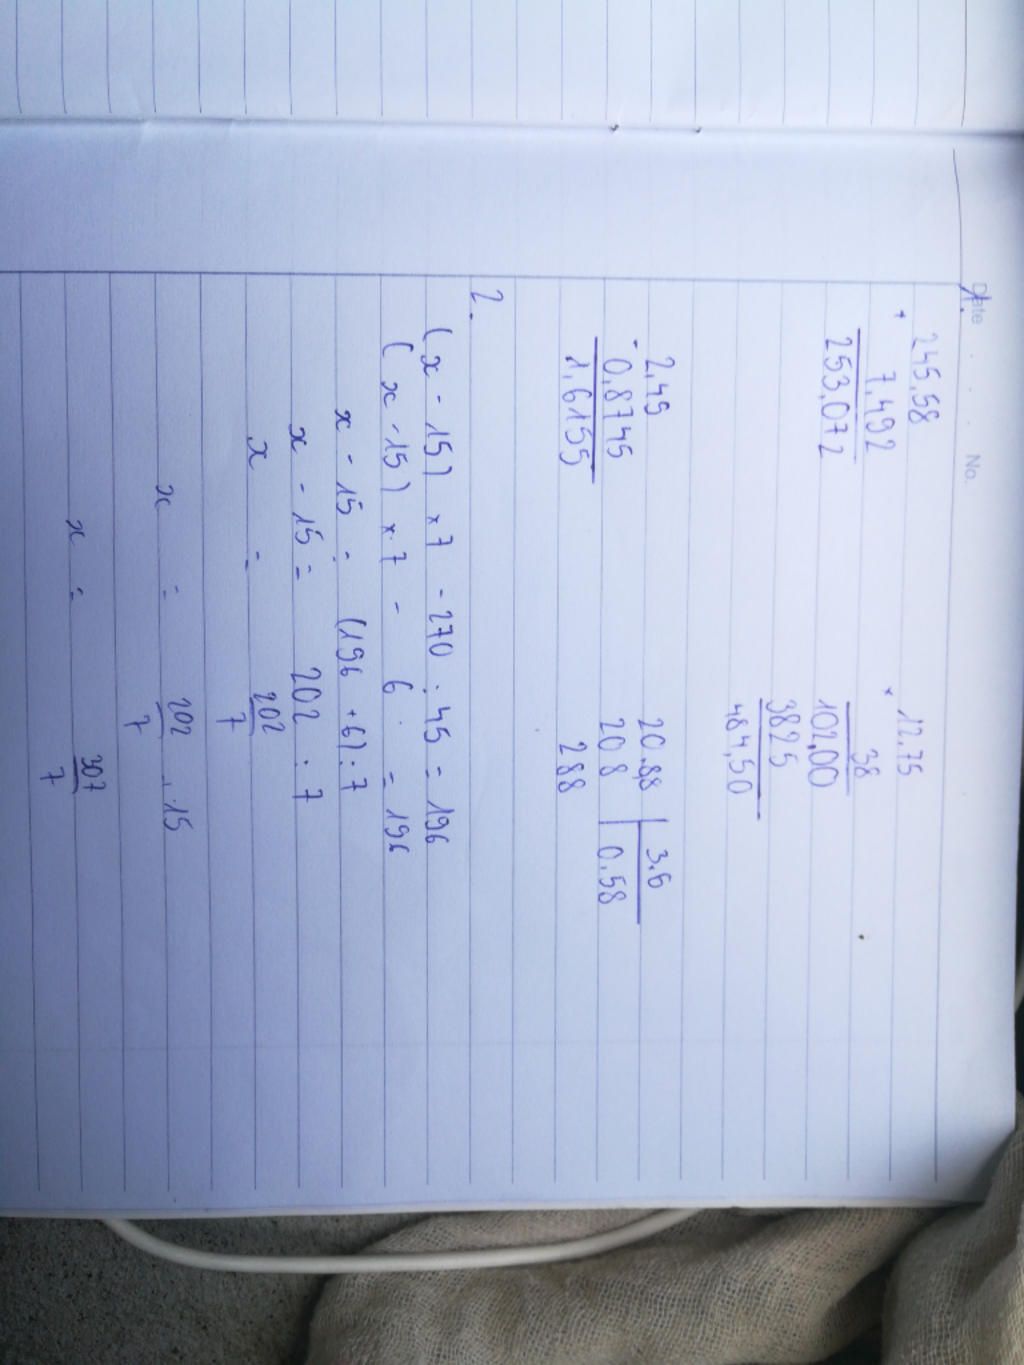 Date . . . No.
1.
245,58
+ 7,492
253,072
× 12,75
38
102,00
3825
484,50
2,45
- 0,8745
1,6155
20,88 | 3,6
208 | 0,58
288
2.
(x - 15) × 7 - 270 : 45 = 196
(x - 15) × 7 - 6 = 196
x - 15 = (196 + 6) : 7
x - 15 = 202 : 7
x = 202/7
x = 202/7 + 15
x = 307/7